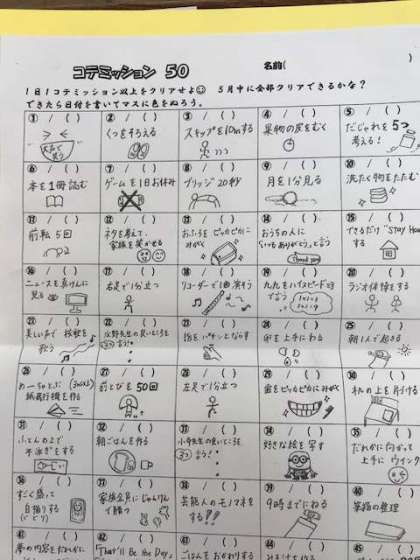 コテミッション 50
名前( )
1日1コテミッション以上をクリアせよ 5月中に全部クリアできるかな?
できたら日付を書いてマスに色をぬろう。
① / ( )
大声で笑う
② / ( )
くつをそろえる
③ / ( )
スキップを10mする
④ / ( )
果物の皮をむく
⑤ / ( )
だじゃれを5つ
考える!
⑥ / ( )
本を1冊読む
⑦ / ( )
ゲームを1日お休み
⑧ / ( )
ブリッジ20秒
⑨ / ( )
月を1分見る
⑩ / ( )
洗たく物をたたむ
⑪ / ( )
前転5回
⑫ / ( )
ネタを考えて、
家族を笑わせる
⑬ / ( )
おふろをピッカピカに
みがく
⑭ / ( )
おうちの人に
「いつもありがとう」と言う
Thank you
⑮ / ( )
できるだけ"STAY Ho
⑯ / ( )
ニュースを真けんに
見る
⑰ / ( )
右足で1分立つ
⑱ / ( )
リコーダーで1曲演そう
⑲ / ( )
九九をハイスピードで
言う
⑳ / ( )
ラジオ体操をする
㉑ / ( )
美しい声で校歌を
歌う
㉒ / ( )
水野先生の良いところを
3つ言う!
㉓ / ( )
指をパチンとならす
㉔ / ( )
卵を上手にわる
㉕ / ( )
朝1人で起きる
㉖ / ( )
紙飛行機を作る
㉗ / ( )
前とびを50回
㉘ / ( )
左足で1分立つ
㉙ / ( )
歯をピッカピカにみがく
㉚ / ( )
机の上を片付ける
㉛ / ( )
ふとんの上で
平泳ぎをする
㉜ / ( )
朝ごはんを作る
㉝ / ( )
先生の良いところを
3つ言う!
㉞ / ( )
好きな絵を写す
㉟ / ( )
だれかに向かって
上手にウインク
㊱ / ( )
すごく盛って
自撮りする
㊲ / ( )
家族全員にじゃんけん
で勝つ
㊳ / ( )
芸能人のモノマネを
する!!
㊴ / ( )
9時までにねる
㊵ / ( )
筆箱の整理
㊶ / ( )
㊷ / ( )
"That'll Be the Day"
㊸ / ( )
ごはんをおかわりする
㊹ / ( )
㊺ / ( )